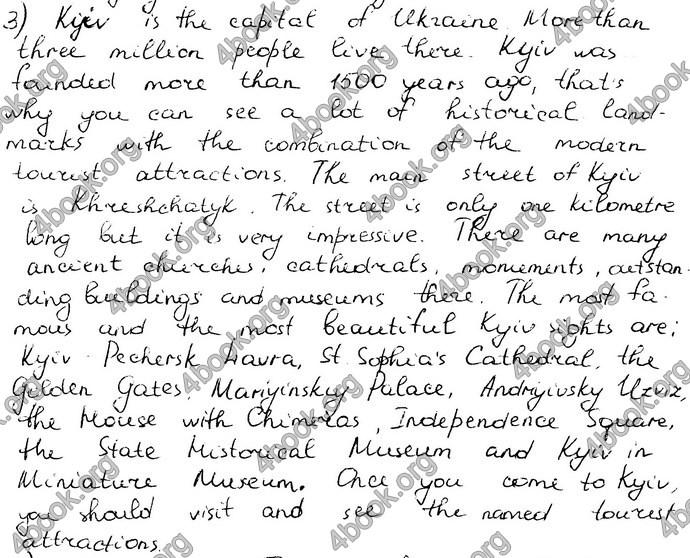 3) Kyiv is the capital of Ukraine. More than
three million people live there. Kyiv was
founded more than 1500 years ago, that's
why you can see a lot of historical land-
marks with the combination of the modern
tourist attractions. The main street of Kyiv
is Khreshchatyk. The street is only one kilometre
long but it is very impressive. There are many
ancient churches, cathedrals, monuments, outstan-
ding buildings and museums there. The most fa-
mous and the most beautiful Kyiv sights are:
Kyiv-Pechersk Lavra, St. Sophia's Cathedral, the
Golden Gates, Mariyinskyy Palace, Andriyivsky Uzviz,
the House with Chimeras, Independence Square,
the State Historical Museum and Kyiv in
Miniature Museum. Once you come to Kyiv,
you should visit and see the named tourist
attractions.